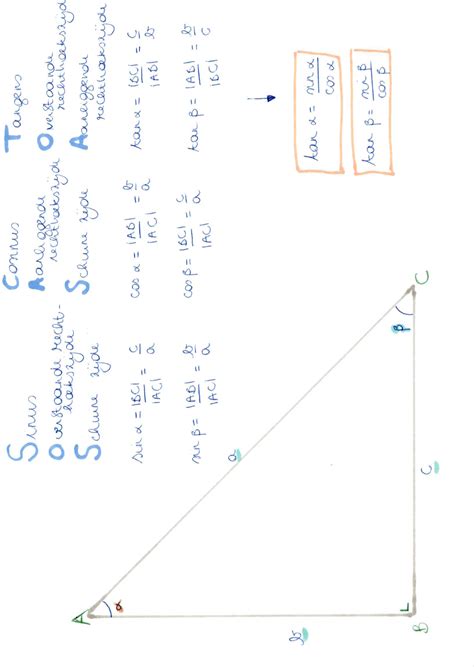 Sinus
Overstaande recht-
hoekszijde
Schuine zijde
sin α = |BC| / |AC| = c / a
sin β = |AB| / |AC| = b / a
Cosinus
Aanliggende
rechthoekszijde
Schuine zijde
cos α = |AB| / |AC| = b / a
cos β = |BC| / |AC| = c / a
Tangens
Overstaande
rechthoekszijde
Aanliggende
rechthoekszijde
tan α = |BC| / |AB| = c / b
tan β = |AB| / |BC| = b / c
→
tan α = sin α / cos α
tan β = sin β / cos β
A
α
a
b
B
c
β
C